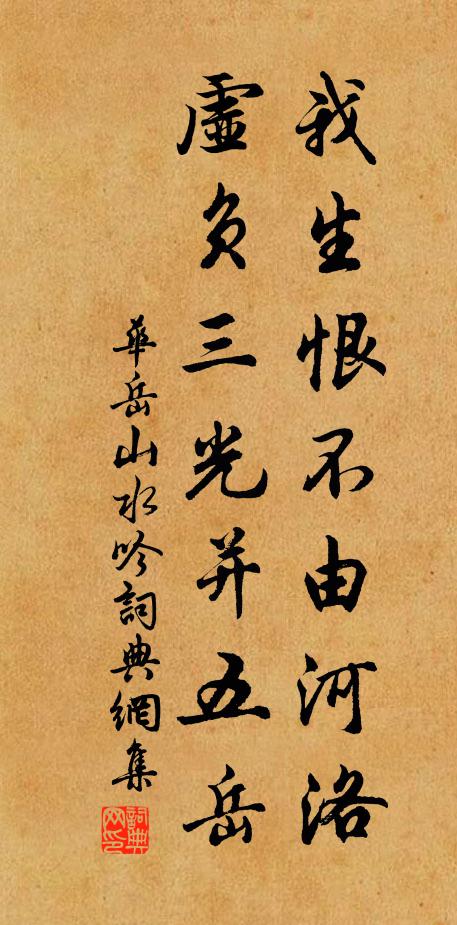 我生恨不由河洛
虛負三光并五岳
華岳山水吟詞典網集
詞典网印